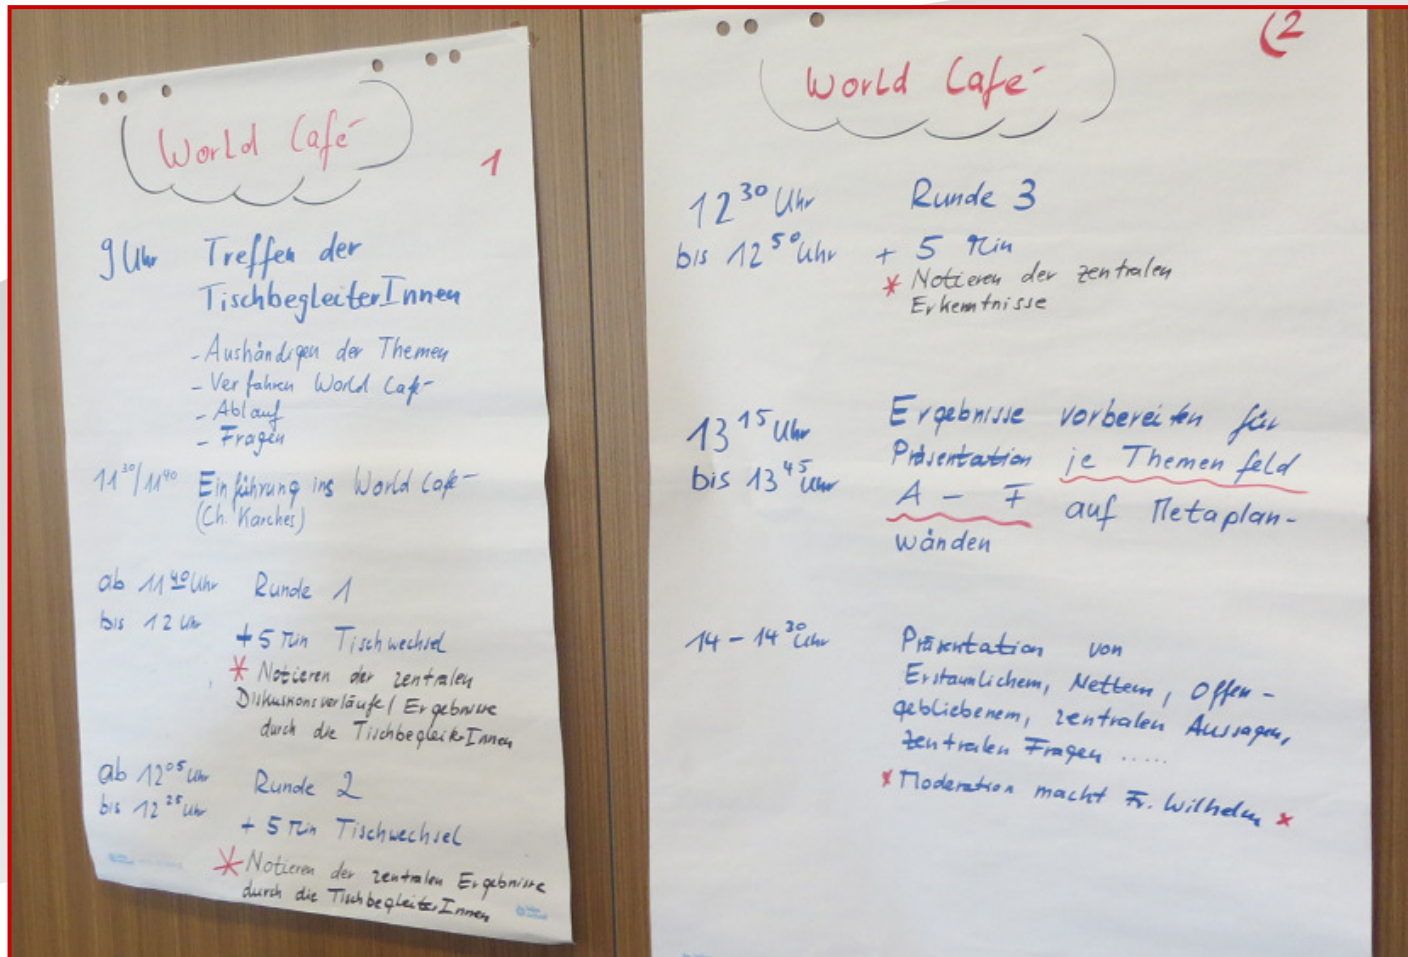 World Café
1
9 Uhr Treffen der
TischbegleiterInnen
- Aushändigen der Themen
- Verfahren World Café
- Ablauf
- Fragen
11³⁰/11⁴⁰ Einführung ins World Café
(Ch. Karches)
ab 11⁴⁰ Uhr Runde 1
bis 12 Uhr
+ 5 Min Tischwechsel
* Notieren der zentralen
Diskussionsverläufe / Ergebnisse
durch die TischbegleiterInnen
ab 12⁰⁵ Uhr Runde 2
bis 12²⁵ Uhr
+ 5 Min Tischwechsel
* Notieren der zentralen Ergebnisse
durch die TischbegleiterInnen
World Café
2
12³⁰ Uhr Runde 3
bis 12⁵⁰ Uhr + 5 Min
* Notieren der zentralen
Erkenntnisse
13¹⁵ Uhr Ergebnisse vorbereiten für
bis 13⁴⁵ Uhr Präsentation je Themenfeld
A - F auf Metaplan-
wänden
14 - 14³⁰ Uhr Präsentation von
Erstaunlichem, Nettem, Offen-
gebliebenem, zentralen Aussagen,
zentralen Fragen .....
* Moderation macht Fr. Wilhelm *